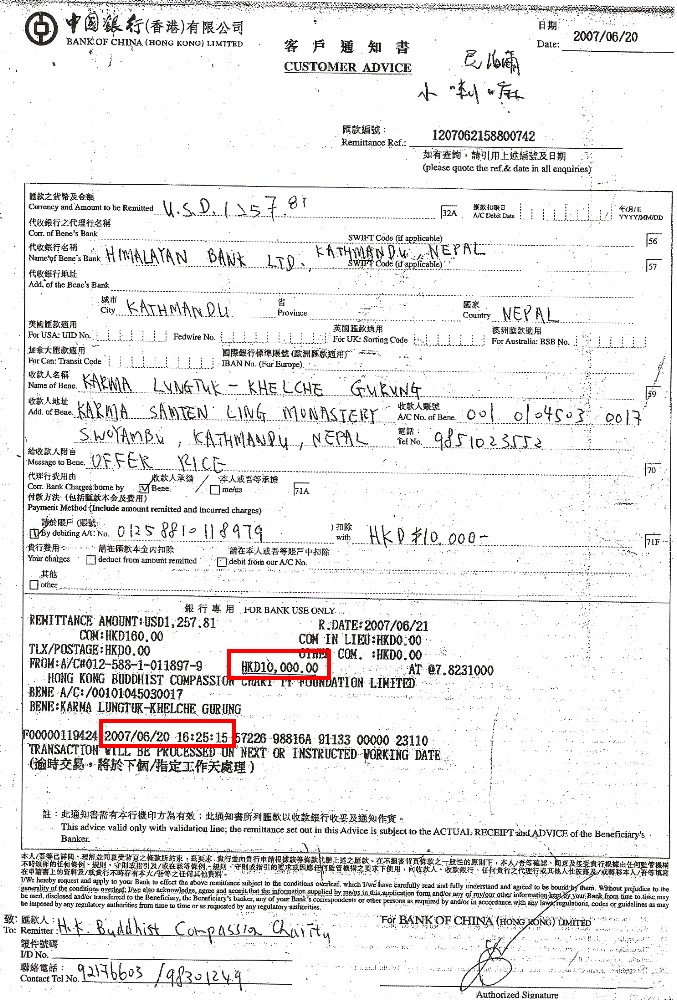 中國銀行(香港)有限公司
BANK OF CHINA (HONG KONG) LIMITED
日期
Date: 2007/06/20
客戶通知書
CUSTOMER ADVICE
尼泊爾
小喇嘛
匯款編號:
Remittance Ref.: 1207062158800742
如有查詢,請引用上述編號及日期
(please quote the ref.& date in all enquiries)
匯款之貨幣及金額
Currency and Amount to be Remitted U.S.D.1257.81 32A 匯款扣賬日 A/C Debit Date 年/月/日 YYYY/MM/DD
代收銀行之代理行名稱
Corr. of Bene's Bank SWIFT Code (if applicable) 56
代收銀行名稱
Name of Bene's Bank HIMALAYAN BANK LTD. KATHMANDU, NEPAL SWIFT Code (if applicable) 57
代收銀行地址
Add. of the Bene's Bank
城市 省 國家
City KATHMANDU Province Country NEPAL
英國匯款適用 澳洲匯款適用
For USA: UID No. Fedwire No. For UK: Sorting Code For Australia: BSB No.
加拿大匯款適用 國際銀行標準賬號(歐洲匯款適用)
For Can: Transit Code IBAN No. (For Europe)
收款人名稱
Name of Bene. KARMA LUNGTUK-KHELCHE GURUNG 59
收款人地址 收款人賬號
Add. of Bene. KARMA SAMTEN LING MONASTERY A/C No. of Bene. 001 0104503 0017
電話:
SWOYAMBU, KATHMANDU, NEPAL Tel No. 9851023552
給收款人附言
Message to Bene. OFFER RICE 70
代理行費用由 收款人承擔 本人/吾等承擔
Corr. Bank Charges borne by Bene. me/us 71A
付款方法(包括匯款本金及費用)
Payment Method (Include amount remitted and incurred charges)
請於賬戶(賬號: )扣除
By debiting A/C No. 01258810118979 with HKD $10,000- 71F
貴行費用: 請在匯款本金內扣除 請在本人/吾等賬戶中扣除
Your charges deduct from amount remitted debit from our A/C No.
其他
other
銀行專用 FOR BANK USE ONLY
REMITTANCE AMOUNT:USD1,257.81 R.DATE:2007/06/21
COM:HKD160.00 COM IN LIEU:HKD0.00
TLX/POSTAGE:HKD0.00 OTHER COM. :HKD0.00
FROM:A/C#012-588-1-011897-9 HKD10,000.00 AT @7.8231000
HONG KONG BUDDHIST COMPASSION CHARITY FOUNDATION LIMITED
BENE A/C:/00101045030017
BENE:KARMA LUNGTUK-KHELCHE GURUNG
F00000119424 2007/06/20 16:25:15 57226 98816A 91133 00000 23110
TRANSACTION WILL BE PROCESSED ON NEXT OR INSTRUCTED WORKING DATE
(逾時交易,將於下個/指定工作天處理)
註:此通知書需有本行機印方為有效;此通知書所列匯款以收款銀行收妥及通知作實。
This advice valid only with validation line; the remittance set out in this Advice is subject to the ACTUAL RECEIPT and ADVICE of the Beneficiary's
Banker.
致: 匯款人: For BANK OF CHINA (HONG KONG) LIMITED
To: Remitter: H.K. Buddhist Compassion Charity
證件號碼
I/D No.
聯絡電話:
Contact Tel No. 92176603 / 98301249
Authorized Signature